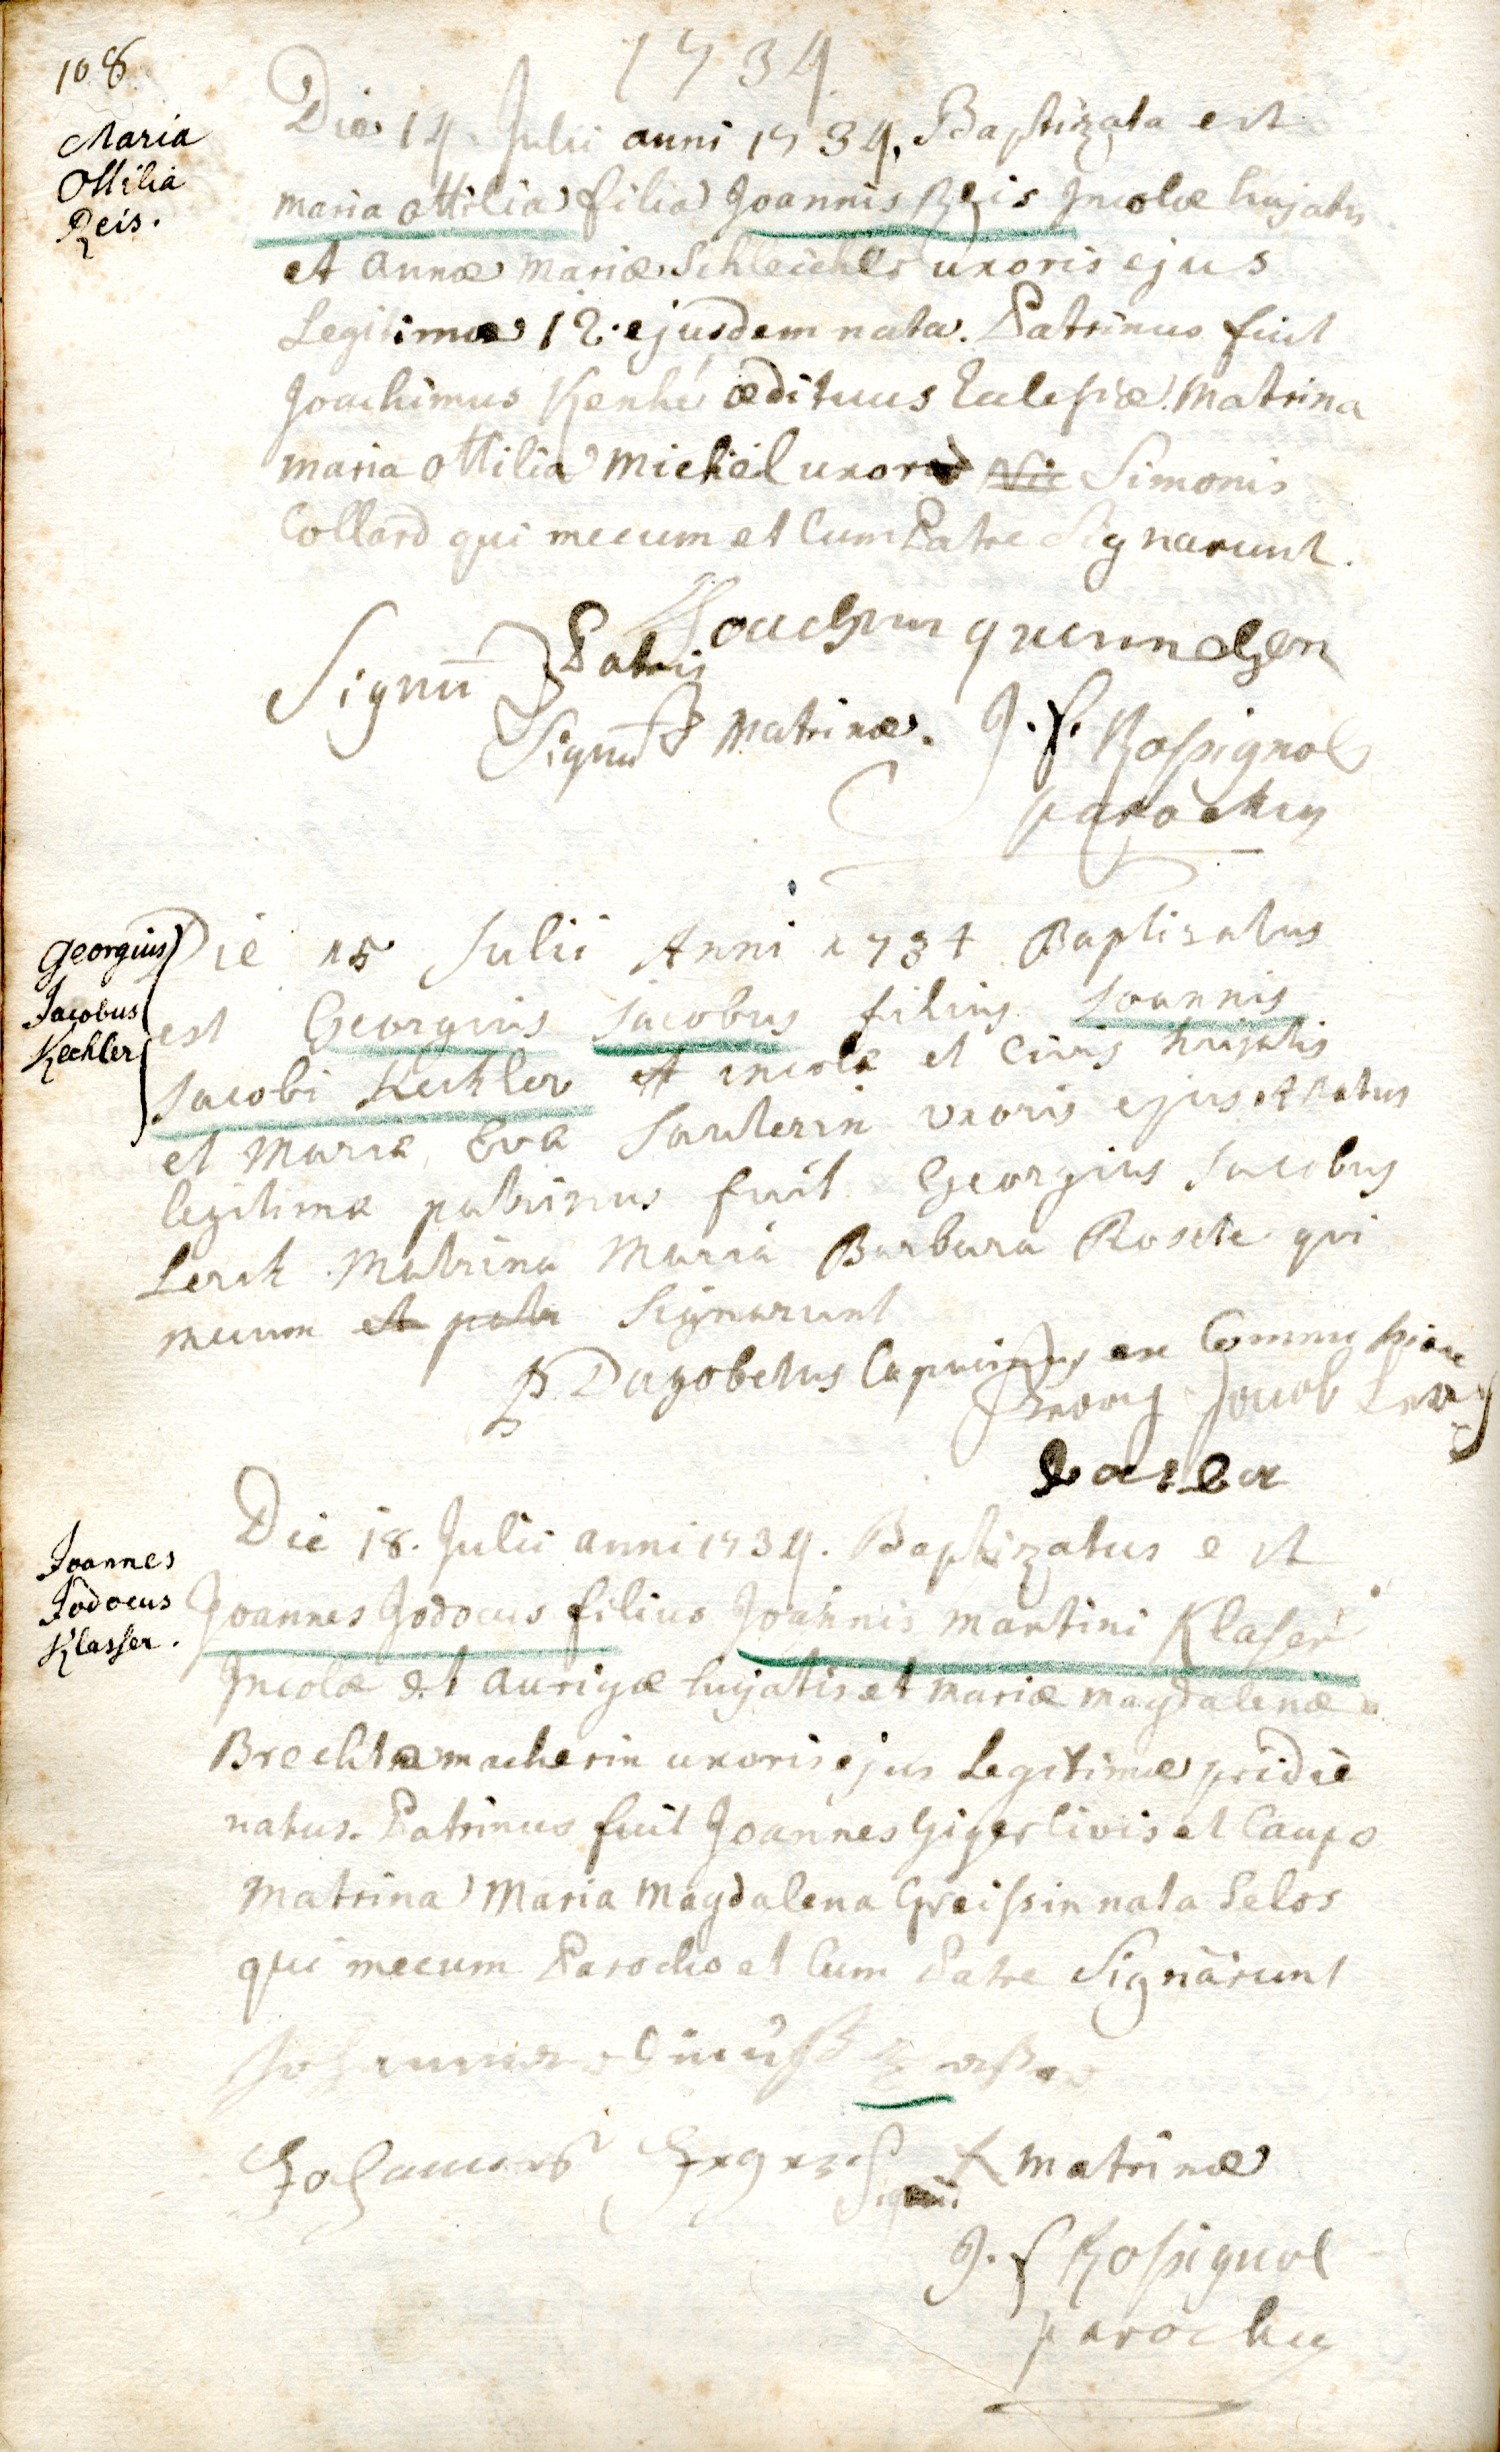 108.
1734
Maria
Ottilia
Reis.
Die 14. Julii anni 1734. Baptizata est
maria ottilia filia Joannis Reis Incolæ hujatis
et annæ mariæ Schleicher uxoris ejus
Legitimæ 12. ejusdem nata. Patrinus fuit
Joachimus Kenhé ædituus Eclesiæ. Matrina
maria ottilia Michel uxor Simonis
Collard qui mecum et Cum Patre Signarunt.
Signū Patris
Signū Matrinæ. J. f. Rossignol
parochus
Georgius
Jacobus
Kechler
Die 15 Julii Anni 1734 Baptizatus
est Georgius Jacobus filius Joannis
Jacobi Kechler et incolæ et Civis hujatis
et Mariæ Eva Sauterin uxoris ejus et natus
legitimæ patrinus fuit Georgius Jacobus
Lerch Matrina Maria Barbara Rosete qui
mecum et patre Signarunt
P. Dagobetus Capucinus ex Commissione
Jacob
barba
Joannes
Jodocus
Klasser.
Die 18. Julii anni 1734. Baptizatus est
Joannes Jodocus filius Joannis Martini Klaser
Incolæ et aurigæ hujatis et mariæ magdalenæ
Brechtemacherin uxoris ejus Legitimæ pridie
natus. Patrinus fuit Joannes Giger Civis et Caupo
Matrina Maria Magdalena Greissin nata Selos
qui mecum Parocho et Cum Patre Signarunt
Johannes
Signū Matrinæ
J. f Rossignol
parochus